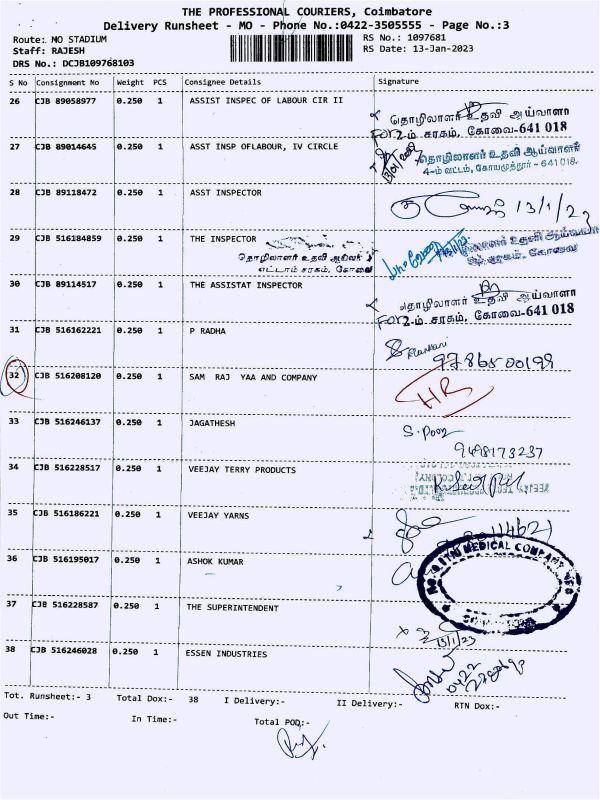 THE PROFESSIONAL COURIERS, Coimbatore
Delivery Runsheet - MO - Phone No.:0422-3505555 - Page No.:3
Route: MO STADIUM
RS No.: 1097681
Staff: RAJESH
RS Date: 13-Jan-2023
DRS No.: DCJB109768103
S No Consignment No Weight PCS Consignee Details Signature
26 CJB 89058977 0.250 1 ASSIST INSPEC OF LABOUR CIR II
தொழிலாளர் உதவி ஆய்வாளர்
For 2-ம் சரகம், கோவை-641 018
27 CJB 89014645 0.250 1 ASST INSP OFLABOUR, IV CIRCLE
தொழிலாளர் உதவி ஆய்வாளர்
4-ம் வட்டம், கோயமுத்தூர் - 641 018.
28 CJB 89118472 0.250 1 ASST INSPECTOR
13/1/23
29 CJB 516184859 0.250 1 THE INSPECTOR
தொழிலாளர் உதவி ஆய்வர்
எட்டாம் சரகம், கோவை
தொழிலாளர் உதவி ஆய்வாளர்
சரகம், கோவை
30 CJB 89114517 0.250 1 THE ASSISTAT INSPECTOR
தொழிலாளர் உதவி ஆய்வாளர்
For 2-ம் சரகம், கோவை-641 018
31 CJB 516162221 0.250 1 P RADHA
32 CJB 516208120 0.250 1 SAM RAJ YAA AND COMPANY
HR
33 CJB 516246137 0.250 1 JAGATHESH
9498173237
34 CJB 516228517 0.250 1 VEEJAY TERRY PRODUCTS
35 CJB 516186221 0.250 1 VEEJAY YARNS
36 CJB 516195017 0.250 1 ASHOK KUMAR
MEDICAL COMPANY
37 CJB 516228587 0.250 1 THE SUPERINTENDENT
13/1/23
38 CJB 516246028 0.250 1 ESSEN INDUSTRIES
0422
Tot. Runsheet:- 3 Total Dox:- 38 I Delivery:- II Delivery:- RTN Dox:-
Out Time:- In Time:- Total POD:-